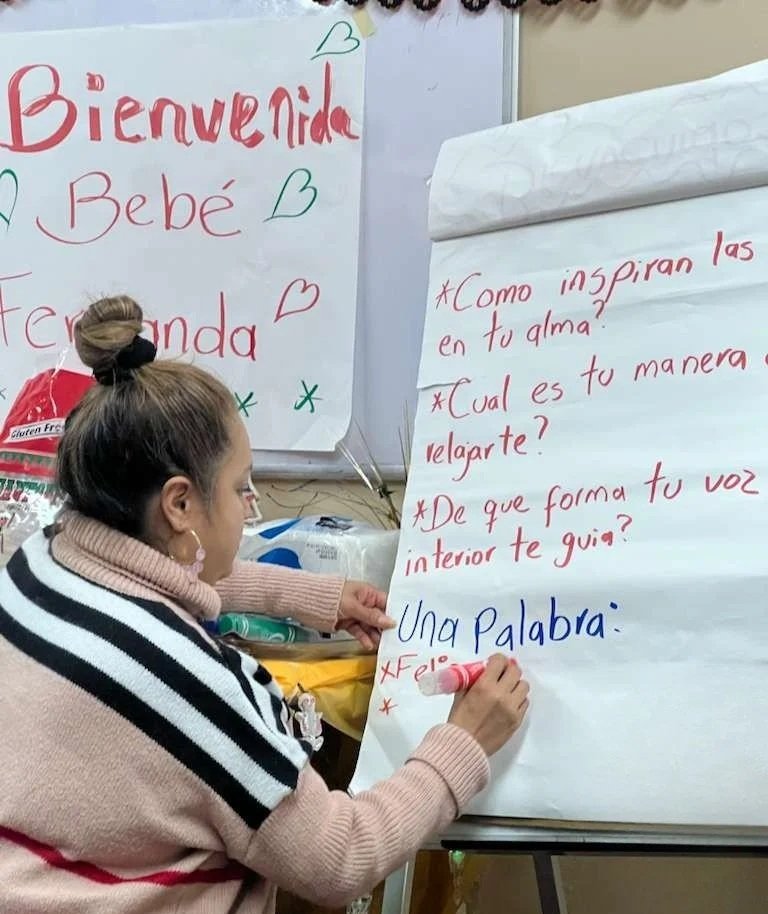 Bienvenida
Bebé
Fernanda
Gluten Free
*Como inspiran las
en tu alma?
*Cual es tu manera
relajarte?
*De que forma tu voz
interior te guia?
Una Palabra:
*Feli
*